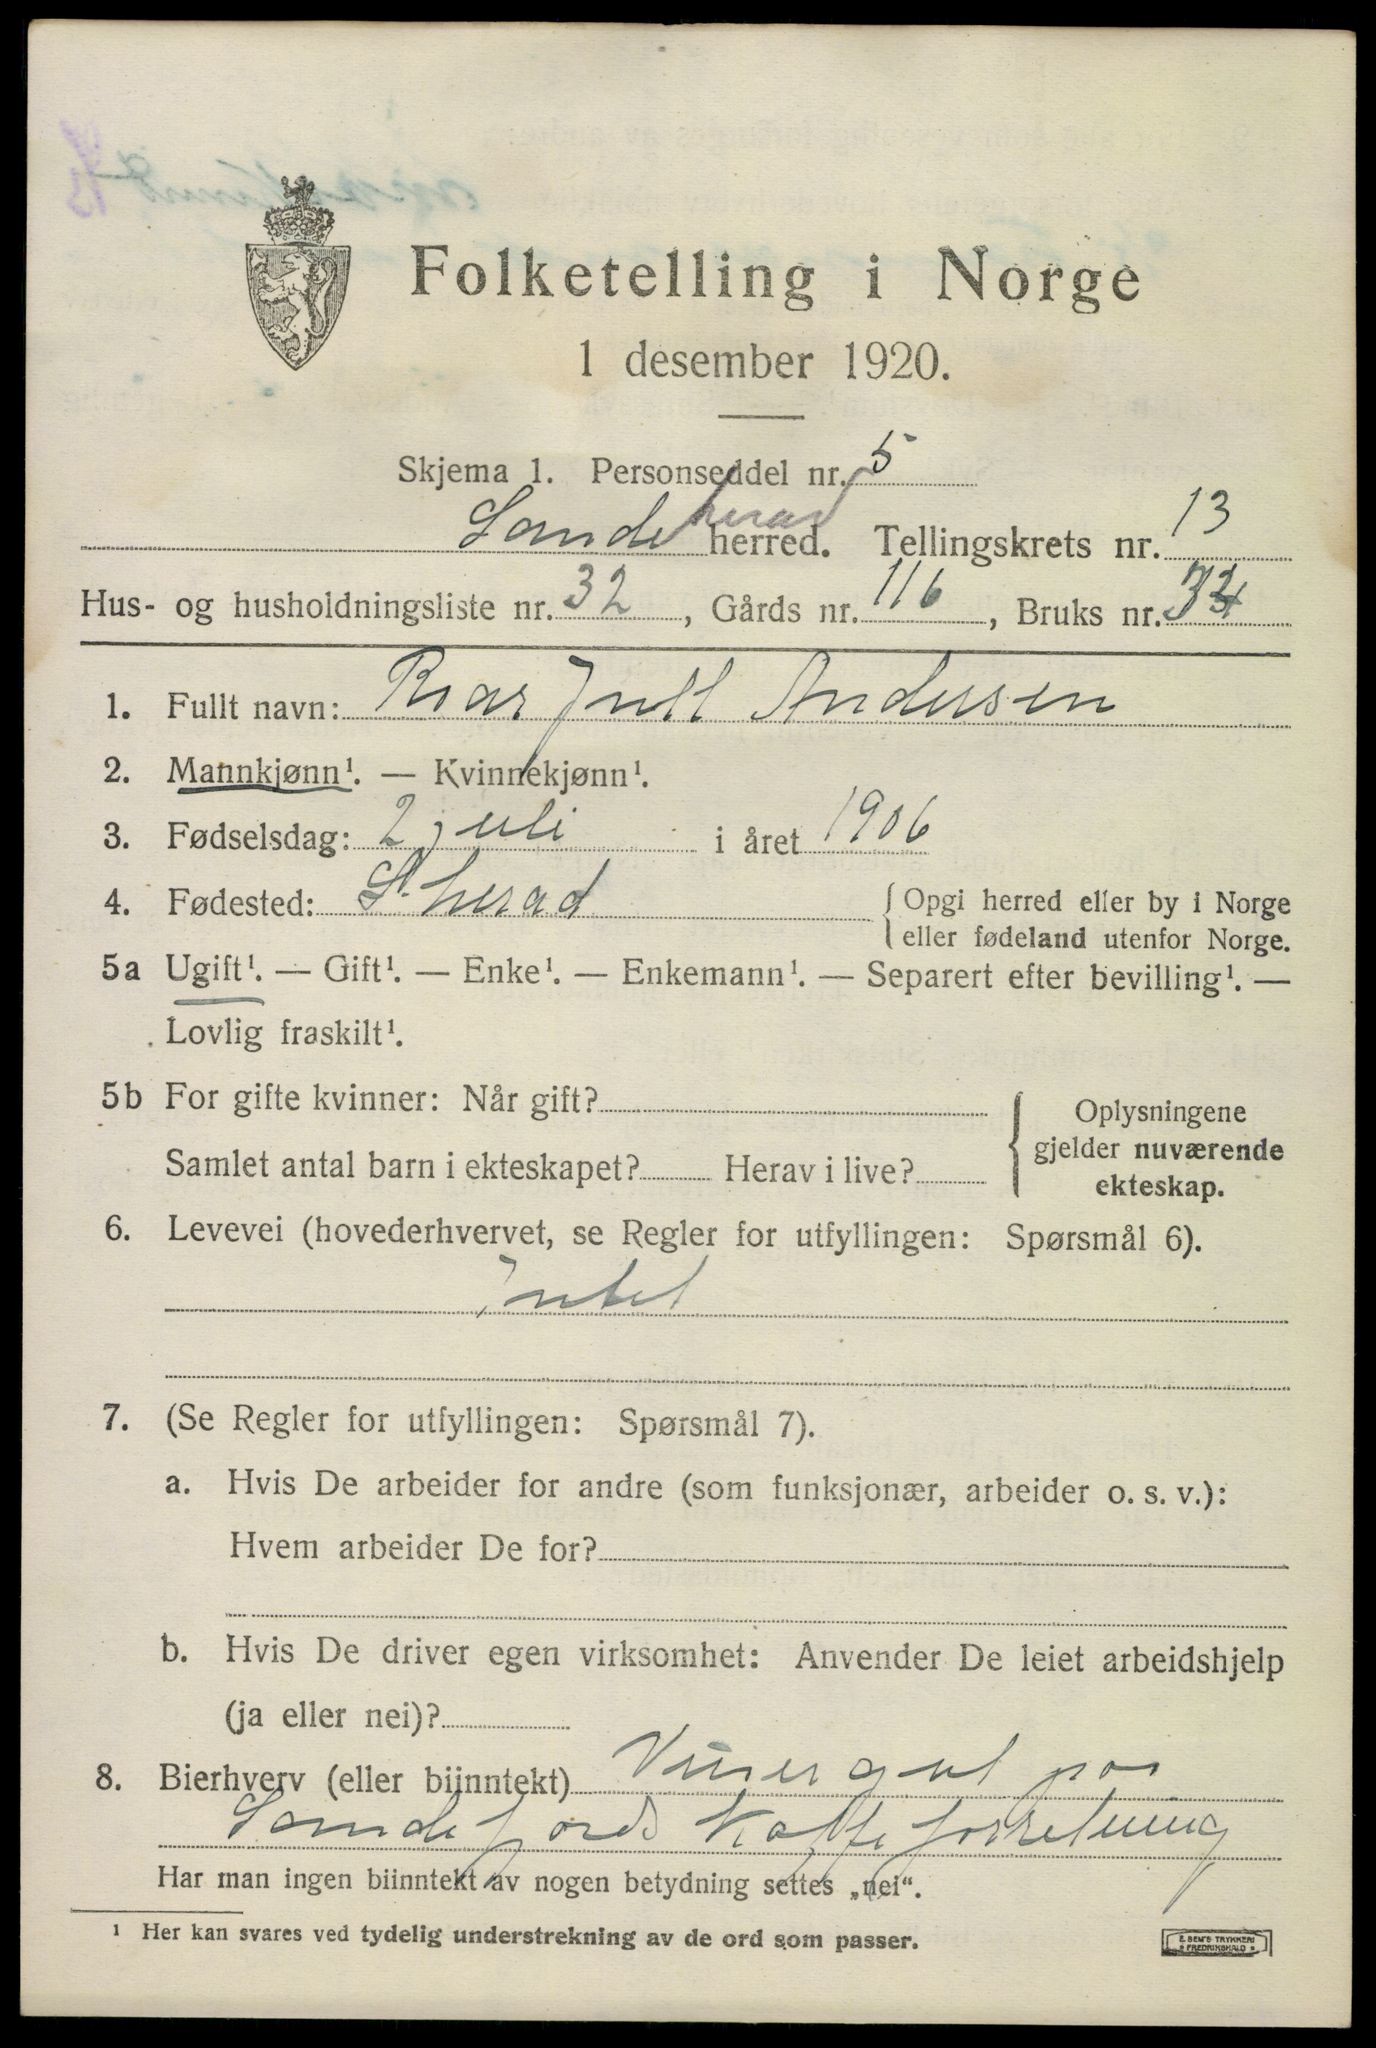 Folketelling i Norge
1 desember 1920.
Skjema 1. Personseddel nr. 5
Sande herad herred. Tellingskrets nr. 13
Hus- og husholdningsliste nr. 32, Gårds nr. 116, Bruks nr.
1. Fullt navn: Roar Juell Andersen
2. Mannkjønn¹. — Kvinnekjønn¹.
3. Fødselsdag: 2 juli i året 1906
4. Fødested: S. herad { Opgi herred eller by i Norge
eller fødeland utenfor Norge.
5a Ugift¹. — Gift¹. — Enke¹. — Enkemann¹. — Separert efter bevilling¹. —
Lovlig fraskilt¹.
5b For gifte kvinner: Når gift? { Oplysningene
gjelder nuværende
Samlet antal barn i ekteskapet? Herav i live?
ekteskap.
6. Levevei (hovederhvervet, se Regler for utfyllingen: Spørsmål 6).
Intet
7. (Se Regler for utfyllingen: Spørsmål 7).
a. Hvis De arbeider for andre (som funksjonær, arbeider o. s. v.):
Hvem arbeider De for?
b. Hvis De driver egen virksomhet: Anvender De leiet arbeidshjelp
(ja eller nei)?
8. Bierhverv (eller biinntekt) Visergut paa
Sandefjords Kaffeforretning
Har man ingen biinntekt av nogen betydning settes „nei“.
¹ Her kan svares ved tydelig understrekning av de ord som passer.
E. SEM'S TRYKKERI
FREDRIKSHALD